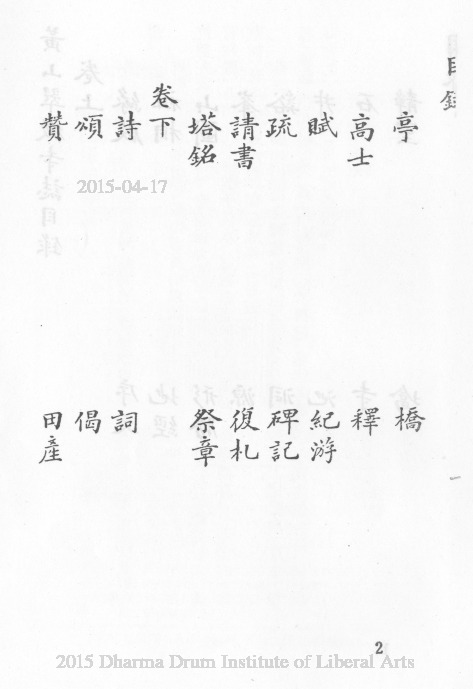 目錄
亭 橋
高士 釋
賦 紀游
疏 碑記
請書 復札
塔銘 祭章
卷下
詩 詞
頌 偈
贊 田產
2015-04-17
2
2015 Dharma Drum Institute of Liberal Arts